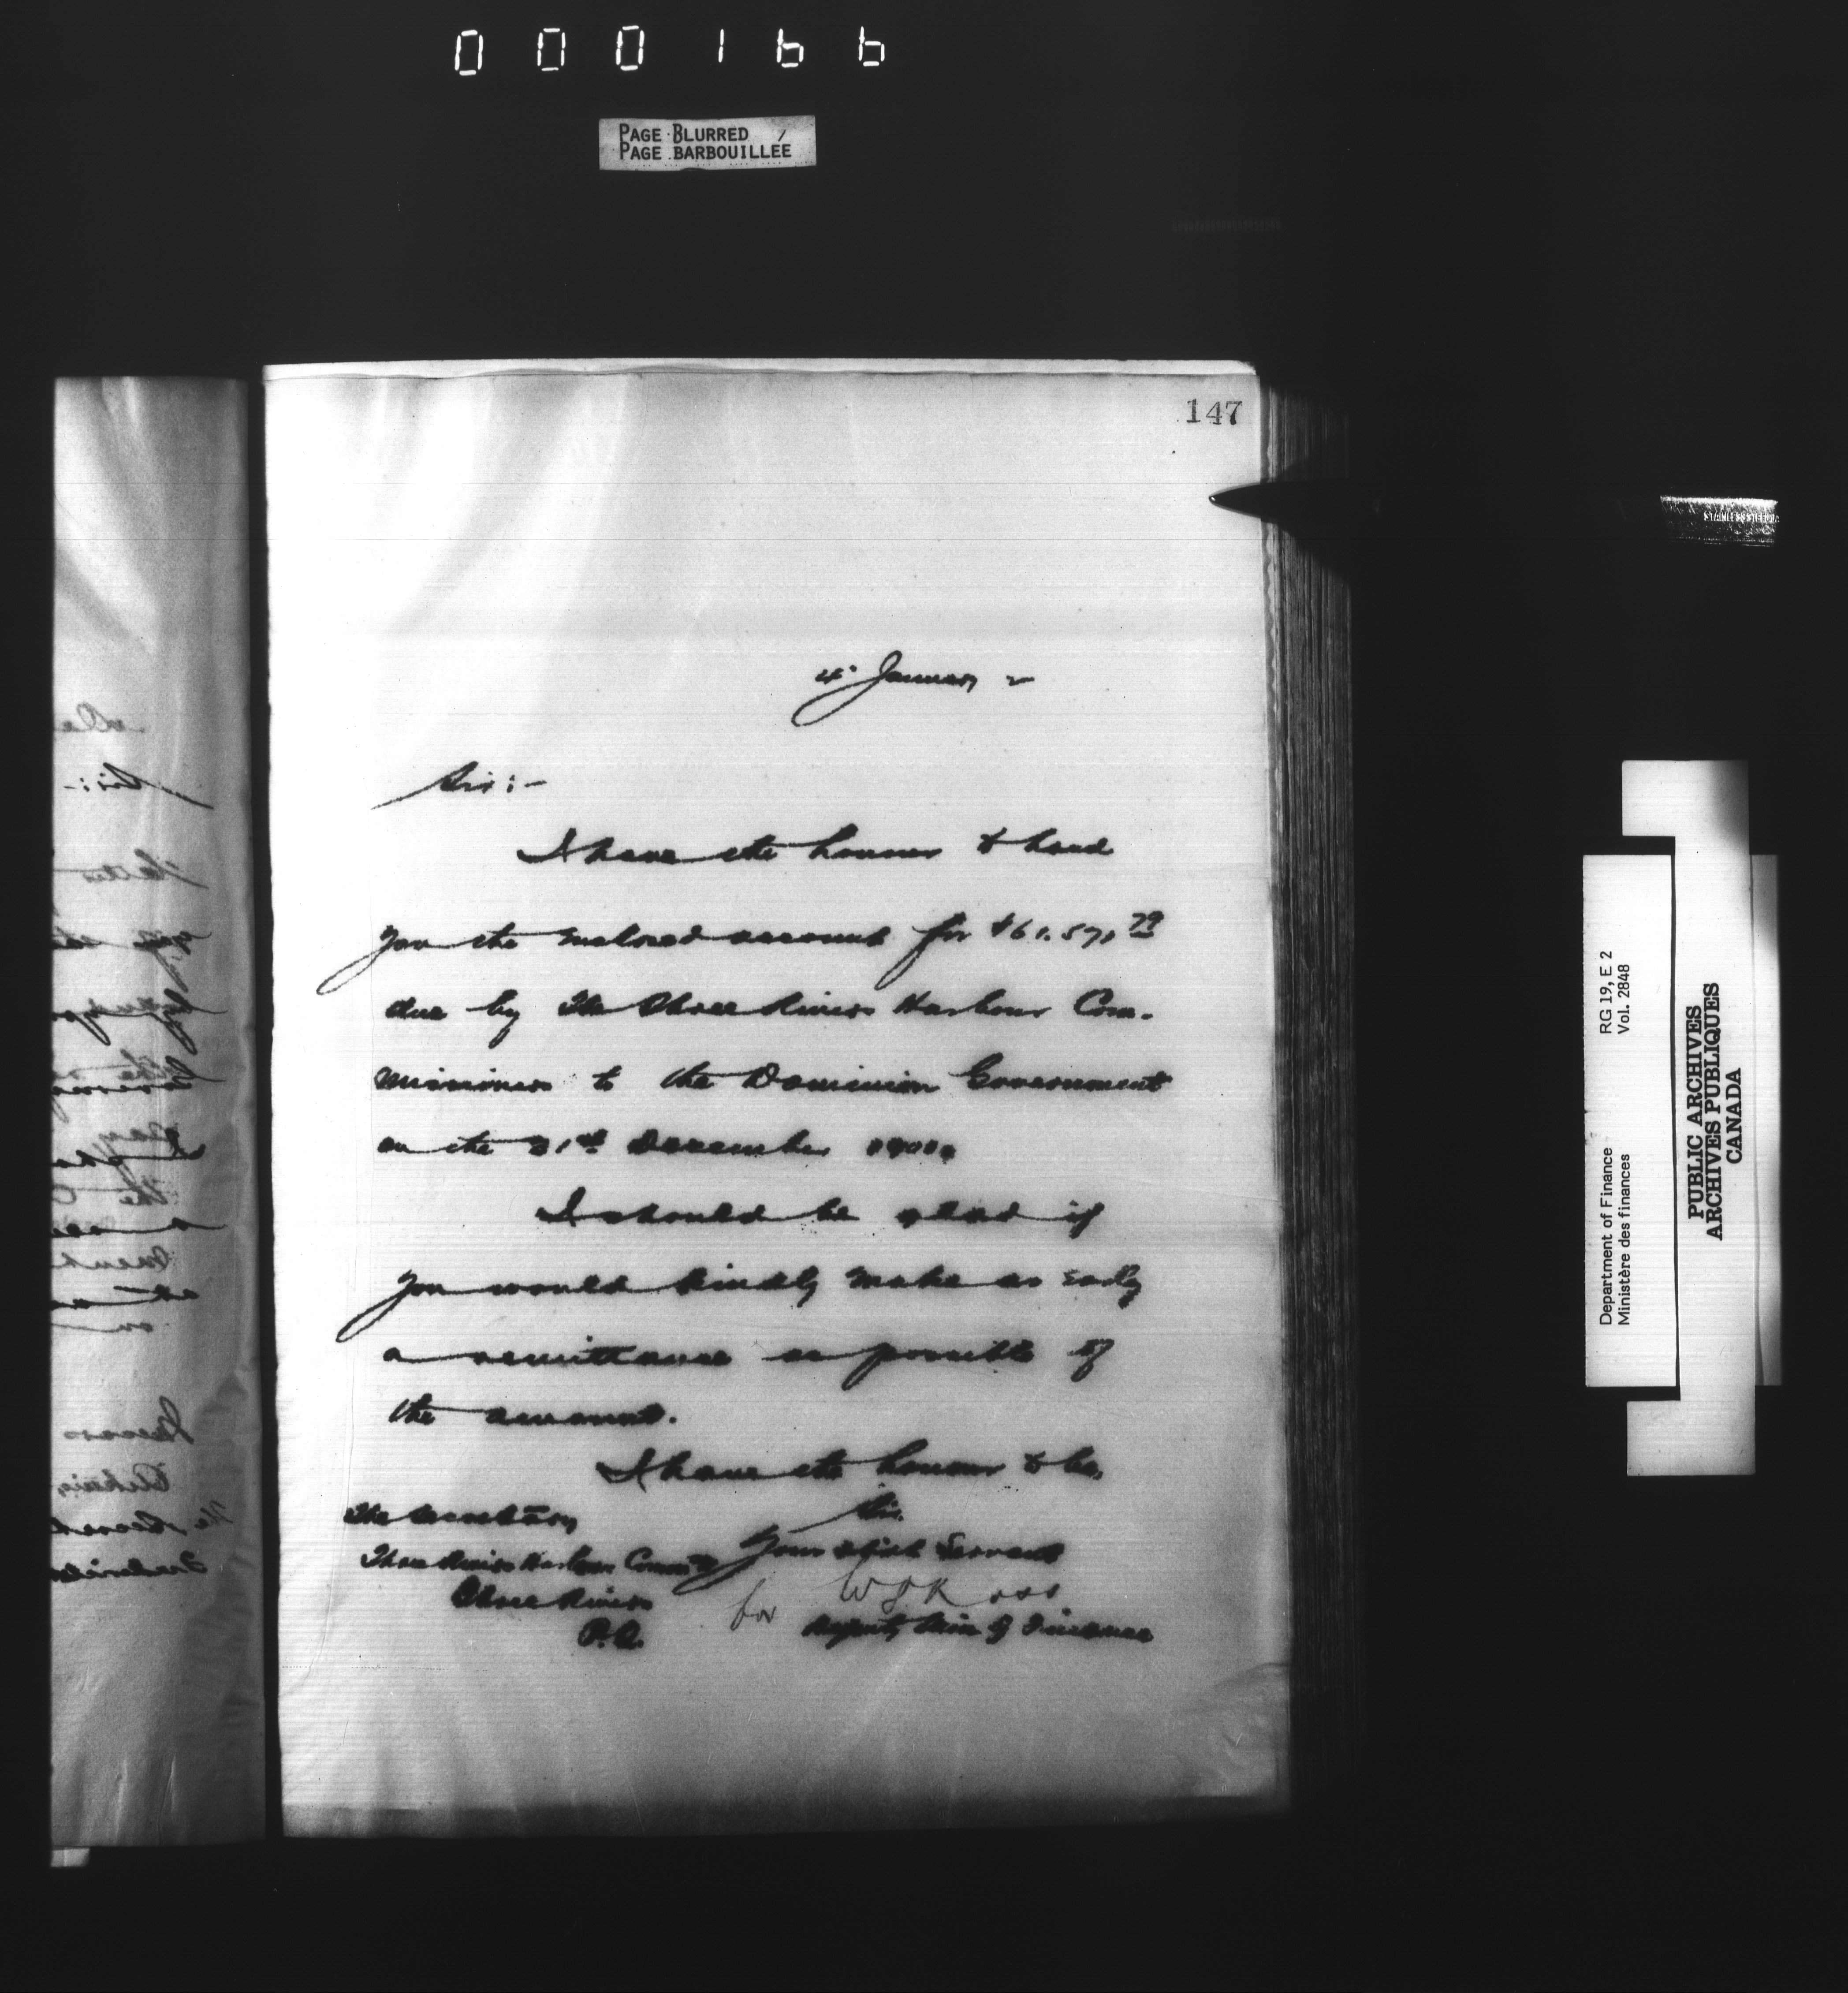 000166
PAGE BLURRED
PAGE BARBOUILLÉE
147
4 January 2
Sir:-
I have the honour to hand
you the enclosed account for $61.571 79
due by The Three Rivers Harbour Com-
missioners to the Dominion Government
on the 31st December 1901.
I should be glad if
you would kindly make as early
a remittance as possible of
the amount.
I have the honour to be,
Sir,
Your obdt Servant
for W J K Ross
Deputy Min of Finance
The Secretary
Three Rivers Harbour Comm
Three Rivers
P.Q.
Department of Finance RG 19, E 2
Ministère des finances Vol. 2848
PUBLIC ARCHIVES
ARCHIVES PUBLIQUES
CANADA